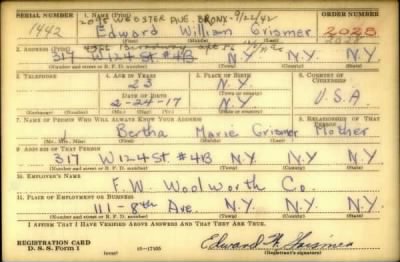 SERIAL NUMBER 1. NAME (Print) ORDER NUMBER
2098 WEBSTER AVE. BRONX - 9/22/42
1442 Edward William Grismer 2025
(First) (Middle) (Last)
2. ADDRESS (Print)
317 W 124 St #4B N.Y. N.Y. N.Y.
(Number and street or R. F. D. number) (Town) (County) (State)
3. TELEPHONE 4. AGE IN YEARS 5. PLACE OF BIRTH 6. COUNTRY OF CITIZENSHIP
23 N.Y.
DATE OF BIRTH (Town or county) U.S.A.
2-24-17 N.Y.
(Exchange) (Number) (Mo.) (Day) (Yr.) (State or country)
7. NAME OF PERSON WHO WILL ALWAYS KNOW YOUR ADDRESS 8. RELATIONSHIP OF THAT PERSON
Bertha Marie Grismer Mother
(Mr., Mrs., Miss) (First) (Middle) (Last)
9. ADDRESS OF THAT PERSON
317 W 124 St #4B N.Y. N.Y. N.Y.
(Number and street or R. F. D. number) (Town) (County) (State)
10. EMPLOYER'S NAME
F. W. Woolworth Co.
11. PLACE OF EMPLOYMENT OR BUSINESS
111 - 8th Ave. N.Y. N.Y. N.Y.
(Number and street or R. F. D. number) (Town) (County) (State)
I AFFIRM THAT I HAVE VERIFIED ABOVE ANSWERS AND THAT THEY ARE TRUE.
REGISTRATION CARD
D. S. S. Form 1 (over) 16—17105 Edward W. Grismer
(Registrant's signature)